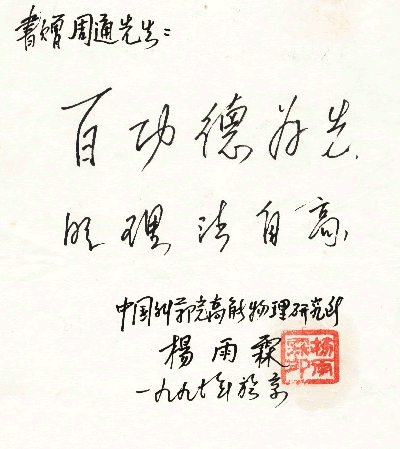 書贈周通先生：
百功德为先
明理法自高
中国科学院高能物理研究所
楊雨霖
一九九七年於京
楊雨霖印